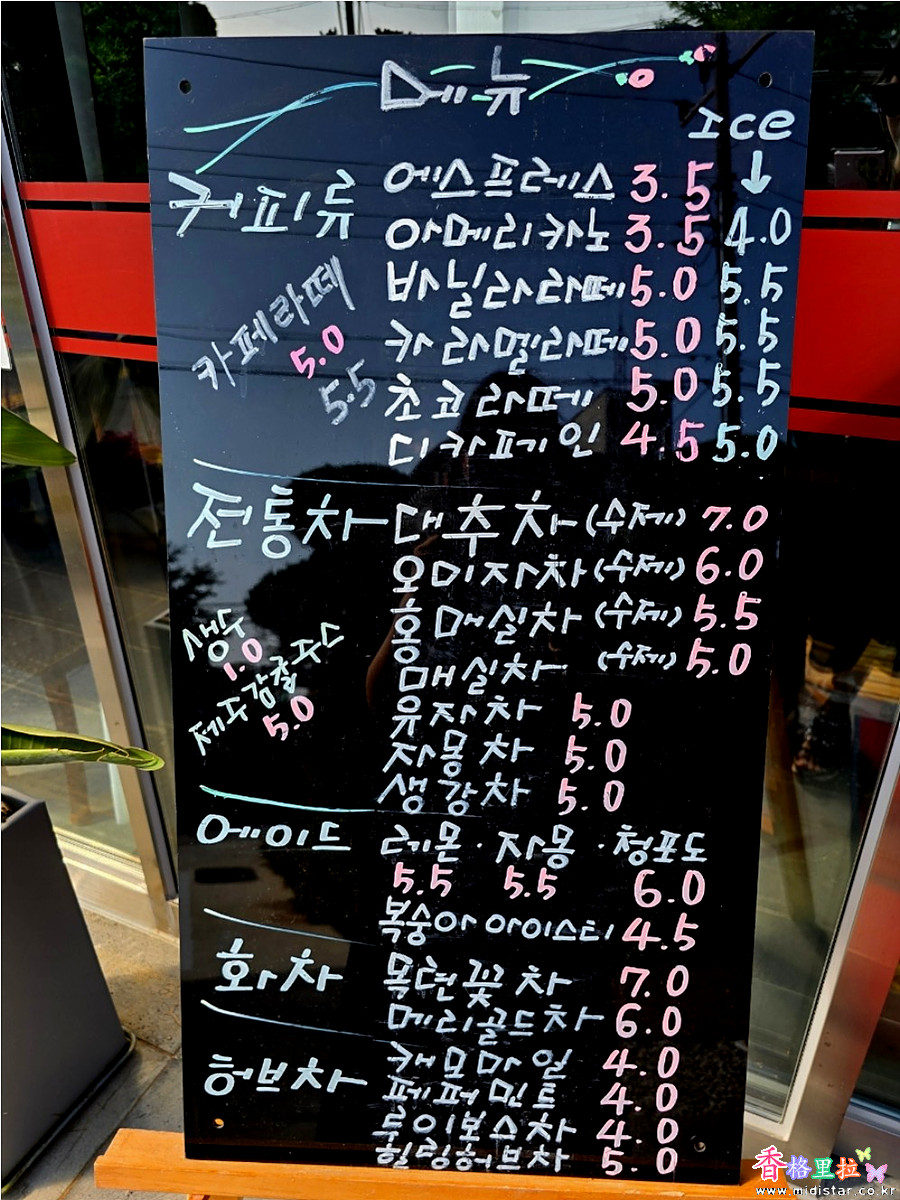 메뉴
Ice
↓
커피류 에스프레스 3.5
아메리카노 3.5 4.0
바닐라라떼 5.0 5.5
카라멜라떼 5.0 5.5
초코라떼 5.0 5.5
디카페인 4.5 5.0
카페라떼
5.0
5.5
전통차 대추차 (수제) 7.0
오미자차 (수제) 6.0
홍매실차 (수제) 5.5
매실차 (수제) 5.0
유자차 5.0
자몽차 5.0
생강차 5.0
생수
1.0
제주감귤주스
5.0
에이드 레몬 · 자몽 · 청포도
5.5 5.5 6.0
복숭아 아이스티 4.5
화차 목련꽃차 7.0
메리골드차 6.0
허브차 캐모마일 4.0
페퍼민트 4.0
루이보스차 4.0
힐링허브차 5.0
香格里拉
www.midistar.co.kr